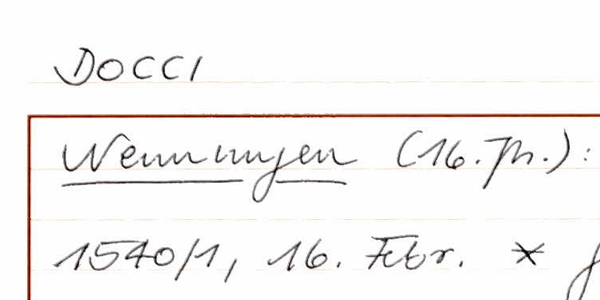 DOCCI
Wenningen (16. Jh.):
1540/1, 16. Febr. *